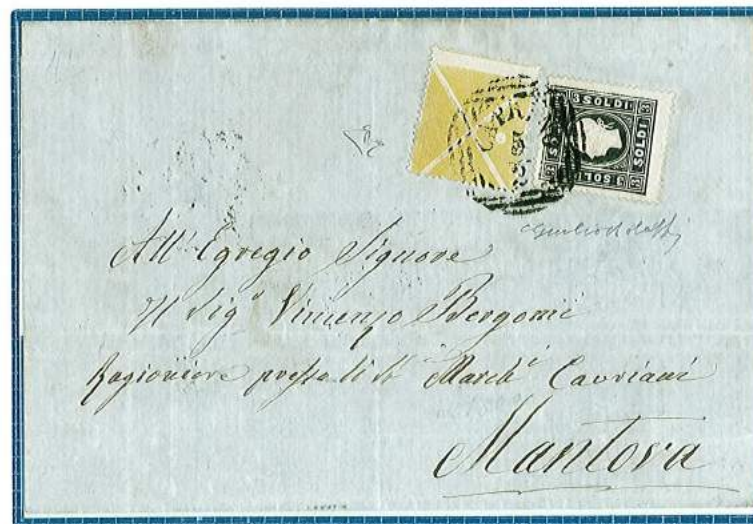 3 SOLDI
SOLDI
3 SOLDI
All' Egregio Signore
Il Sigr Vincenzo Bergomi
Ragioniere presso li Marchi Cavriani
Mantova